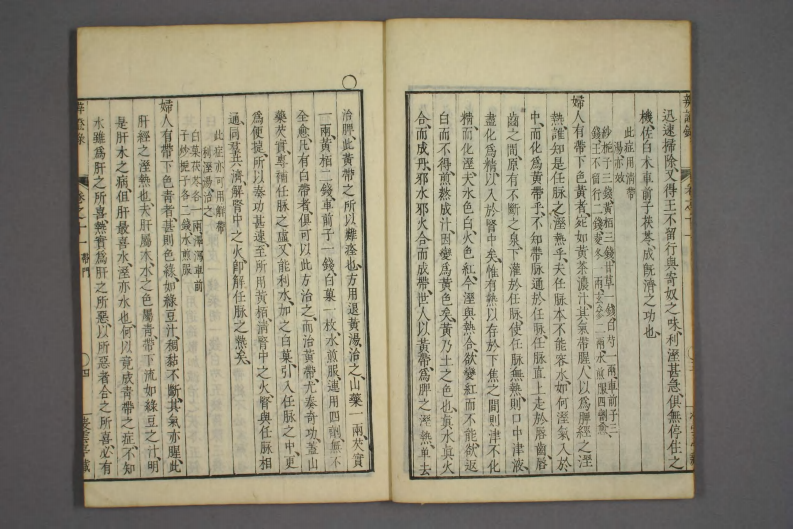 迅速掃除又得王不留行與寄奴之味利溼甚急俱無停住之
機佐白木車前子茯苓成旣濟之功也
此症用淸帶湯亦效
炒梔子三錢黃栢三錢甘草一錢白芍一兩車前子三
錢王不留行二錢麥冬一兩玄參二兩水煎服四劑愈
婦人有帶下色黃者宛如黃茶濃汁其氣帶腥人以爲脾經之溼
熱誰知是任脉之溼熱乎夫任脉本不能容水如何溼氣入於
中而化爲黃帶乎不知帶脉通於任脉任脉直上走於唇齒唇
齒之間原有不斷之泉下灌於任脉使任脉無熱則口中津液
盡化爲精以入於腎中矣惟有熱以存於下焦之間則津不化
精而化溼夫水色白火色紅今溼與熱合欲變紅而不能欲返
白而不得煎熬成汁因變爲黃色矣黃乃土之色也眞水眞火
合而成丹邪水邪火合而成帶世人以黃帶爲脾之溼熱單去
治脾此黃帶之所以難痊也方用退黃湯治之山藥一兩芡實
一兩黃栢二錢車前子一錢白菓一枚水煎服連用四劑無不
全愈凡有白帶者俱可以此方治之而治黃帶尤奏奇功蓋山
藥芡實專補任脉之虛又能利水加之白菓引入任脉之中更
爲便捷所以奏功甚速至所用黃栢淸腎中之火腎與任脉相
通同羣共濟解腎中之火卽解任脉之熱矣
此症亦可用解帶利溼湯治之
白菓茯苓各一兩澤瀉車前
子炒梔子各二錢水煎服
婦人有帶下色青者甚則色綠如綠豆汁稠黏不斷其氣亦腥此
肝經之溼熱也夫肝屬木木之色屬靑帶下流如綠豆之汁明
是肝木之病但肝最喜水溼亦水也何以竟成靑帶之症不知
水雖爲肝之所喜熱實爲肝之所惡以所惡者合之所喜必有
卷之十一 帶門
四